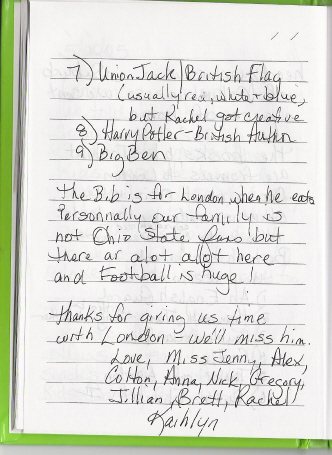 7) Union Jack/British Flag
(usually red, white + blue,
but Rachel got creative
8) Harry Potter - British Author
9) Big Ben
The Bib is for London when he eats
Personnally our family is
not Ohio State fans but
there ar alot allot here
and Football is huge!
Thanks for giving us time
with London - we'll miss him.
Love, Miss Jenny, Alex,
Colton, Anna, Nick, Gregory,
Jillian, Brett, Rachel
Kaihlyn